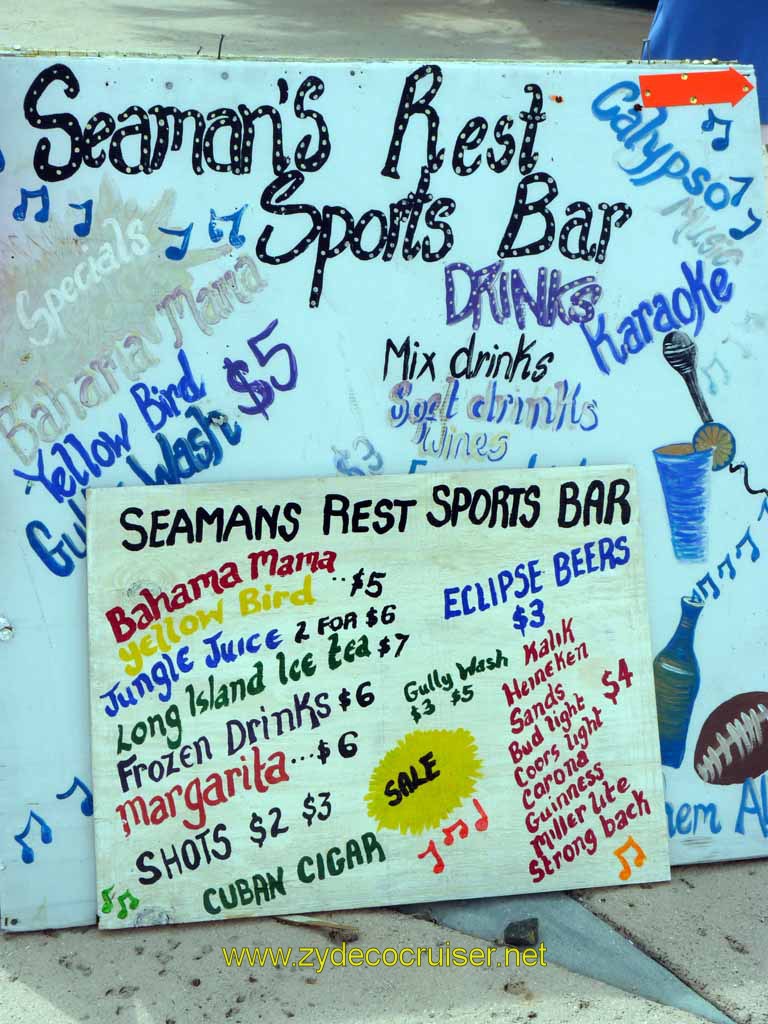 Seaman's Rest
Sports Bar
Calypso
Music
Karaoke
Specials
Bahama Mama
Yellow Bird $5
Gully Wash
DRINKS
Mix drinks
Soft drinks
Wines
$3
SEAMANS REST SPORTS BAR
Bahama Mama
Yellow Bird ..$5
Jungle Juice 2 FOR $6
Long Island Ice tea $7
Frozen Drinks $6
margarita...$6
SHOTS $2 $3
CUBAN CIGAR
Gully Wash
$3 $5
SALE
ECLIPSE BEERS
$3
Kalik
Heineken
Sands $4
Bud light
Coors light
Corona
Guinness
Miller lite
Strong back
www.zydecocruiser.net